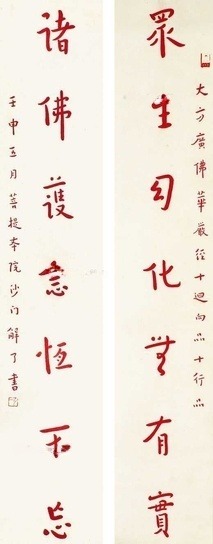 大方廣佛華嚴經十迴向品十行品
眾生幻化無有實
諸佛護念恆不忘
壬申五月菩提本院沙門解了書